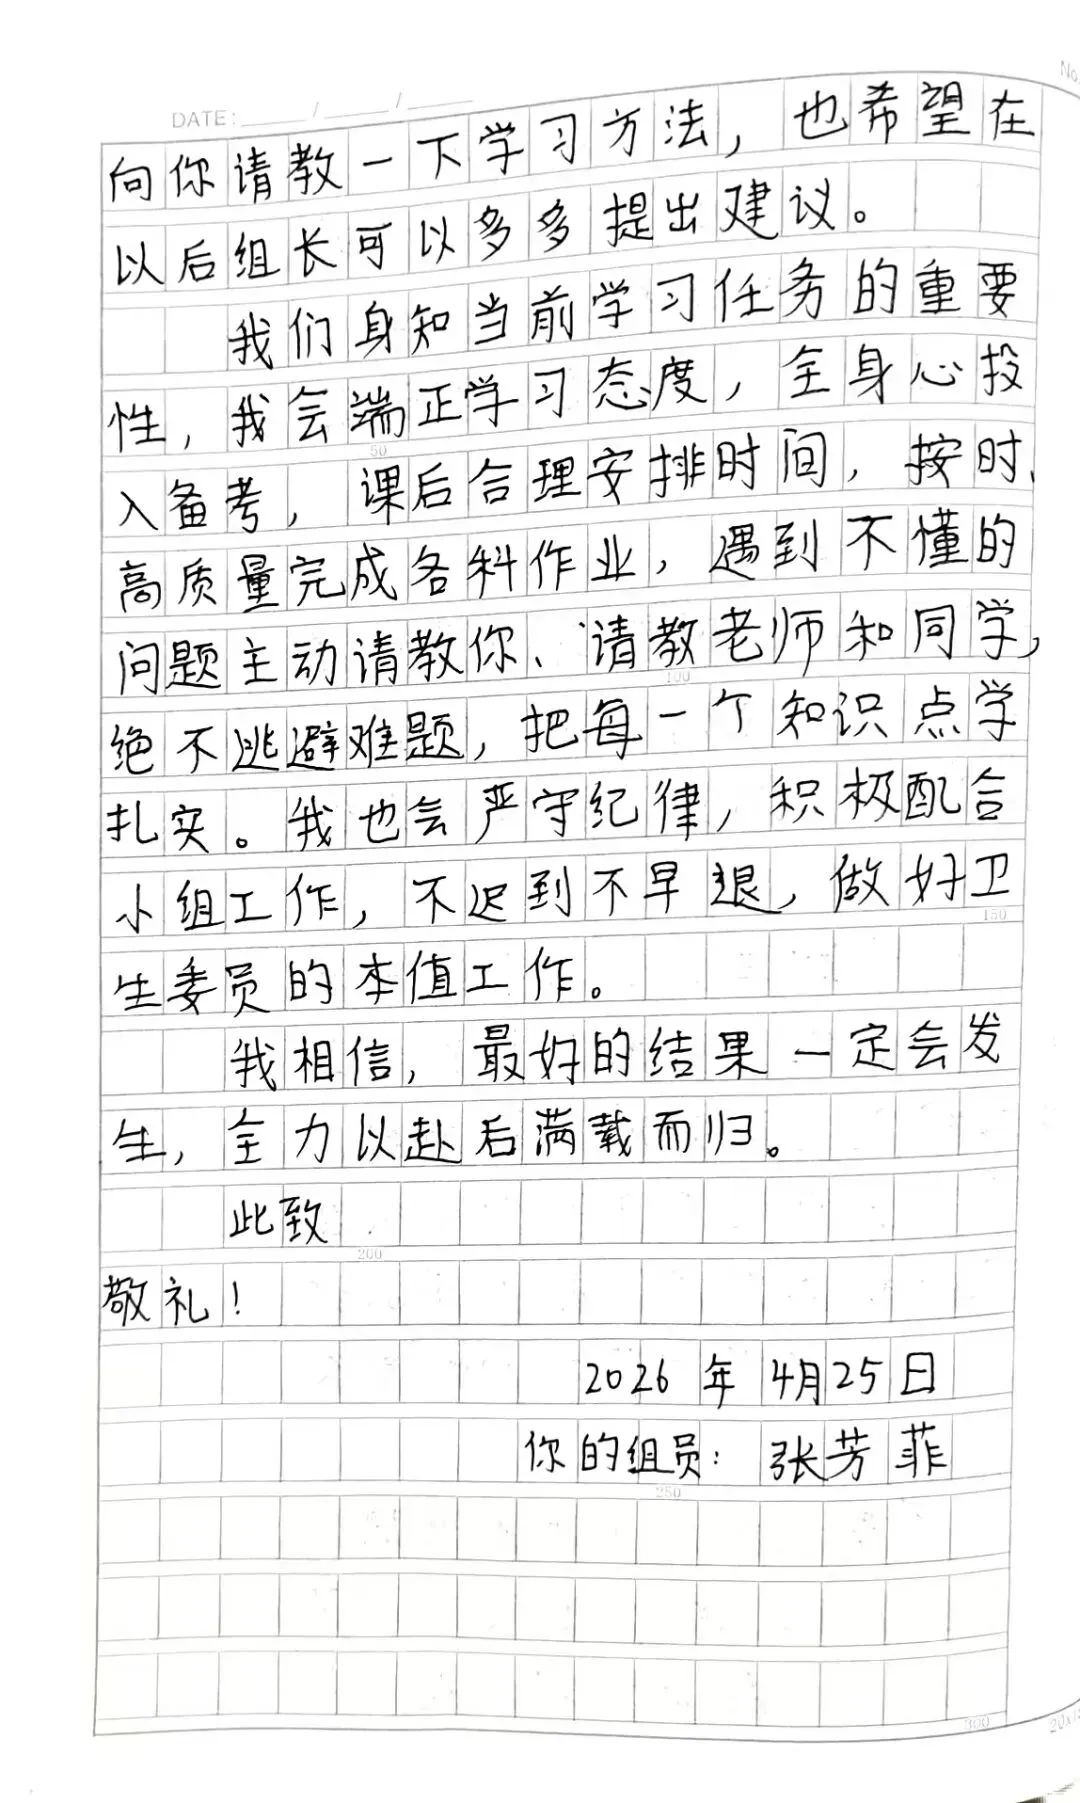 No.
DATE: ____/____/____
向你请教一下学习方法，也希望在
以后组长可以多多提出建议。
我们身知当前学习任务的重要
性，我会端正学习态度，全身心投
入备考，课后合理安排时间，按时、
高质量完成各科作业，遇到不懂的
问题主动请教你、请教老师和同学，
绝不逃避难题，把每一个知识点学
扎实。我也会严守纪律，积极配合
小组工作，不迟到不早退，做好卫
生委员的本值工作。
我相信，最好的结果一定会发
生，全力以赴后满载而归。
此致
敬礼！
2026年4月25日
你的组员：张芳菲
50
100
150
200
250
300